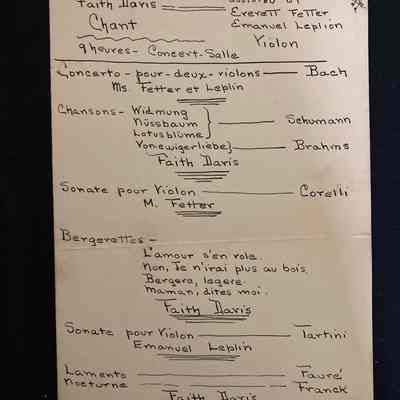 Faith Davis — assisted by
Everett Fetter
Chant Emanuel Leplin
Violon
9 heures - Concert-Salle
Concerto-pour-deux-violons — Bach
Ms. Fetter et Leplin
Chansons - Widmung
Nüssbaum } — Schumann
Lotusblüme
Von ewiger liebe} — Brahms
Faith Davis
Sonate pour Violon — Corelli
M. Fetter
Bergerettes -
L'amour s'en vole.
Non, Je n'irai plus au bois.
Bergere, legere.
Maman, dites moi.
Faith Davis
Sonate pour Violon — Tartini
Emanuel Leplin
Lamento — Fauré
Nocturne — Franck
Faith Davis